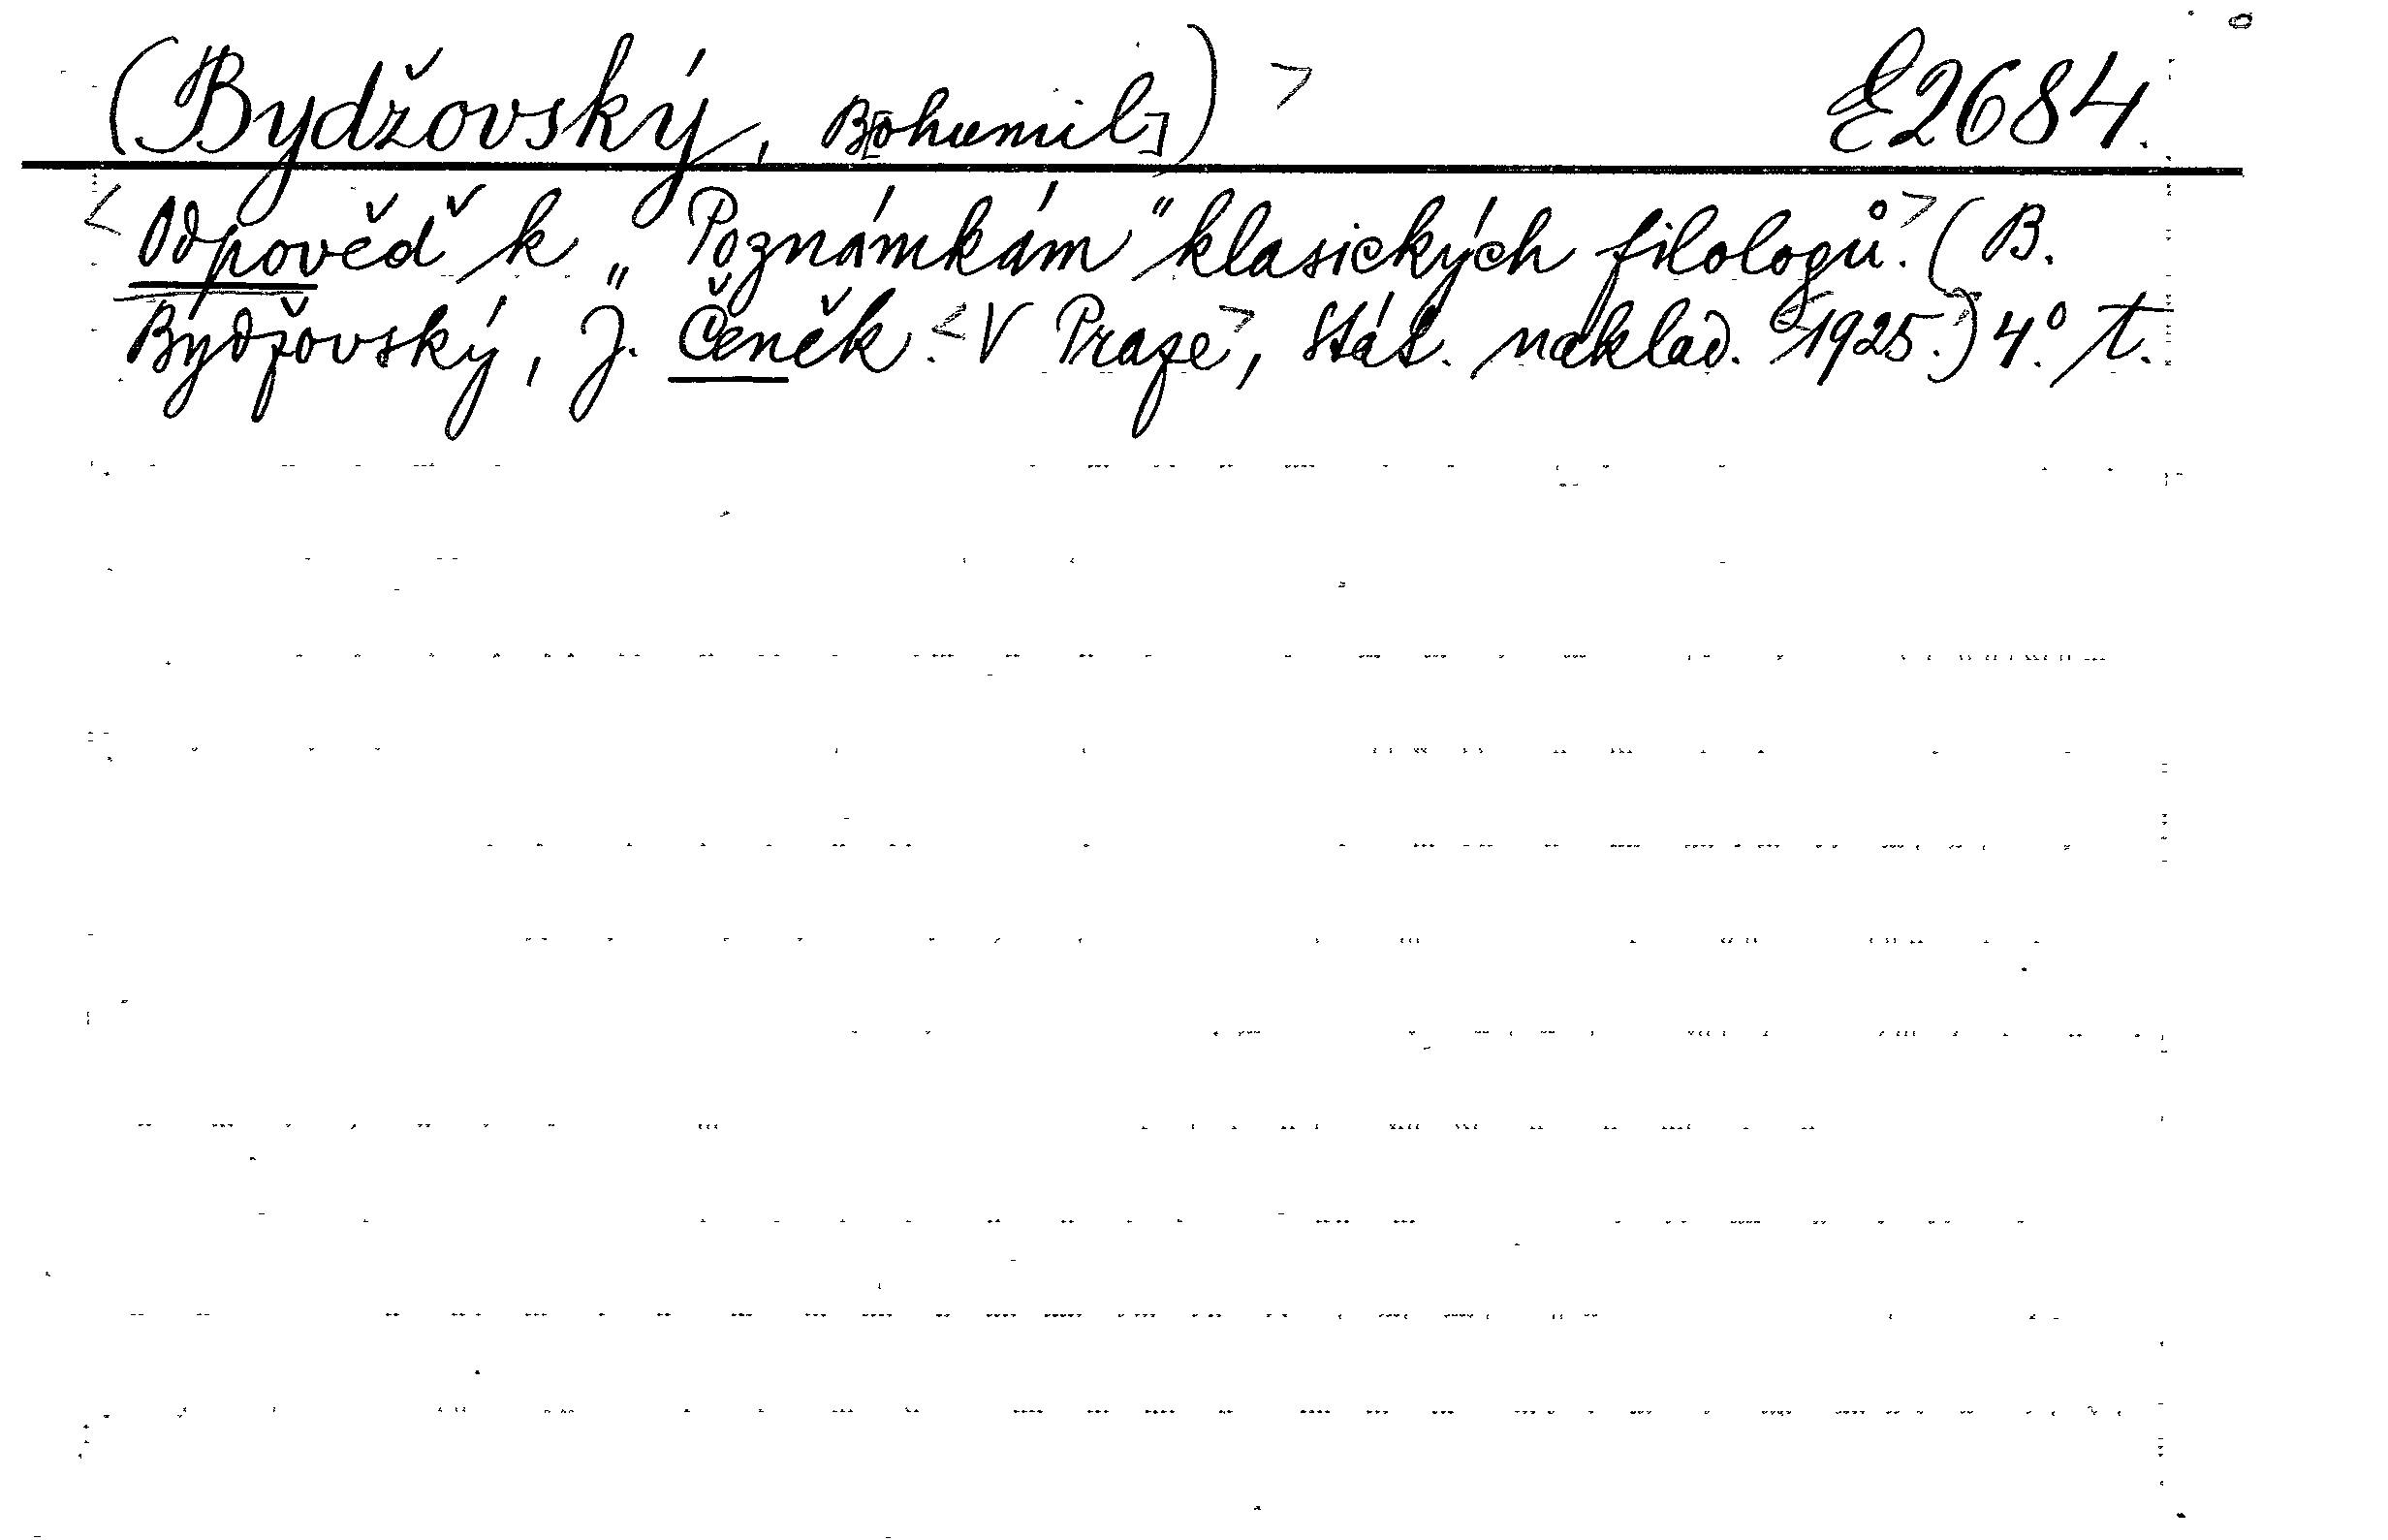 (Bydžovský, B[ohumil]) > E2684.
<Odpověď k „Poznámkám" klasických filologů.> (B.
Bydžovský, J. Čeněk. <V Praze>, Stát. naklad. <1925.>) 4°. t.